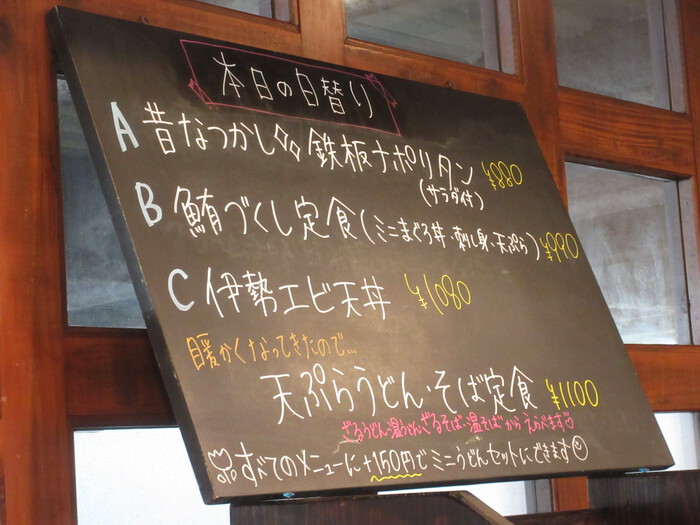 本日の日替り
A 昔なつかし゛鉄板ナポリタン ¥880
(サラダ付)
B 鮪づくし定食(ミニまぐろ丼・刺し身・天ぷら) ¥990
C 伊勢エビ天丼 ¥1080
暖かくなってきたので…
天ぷらうどん・そば定食 ¥1100
ざるうどん・温うどん・ざるそば・温そばからえらべます
すべてのメニューに+150円でミニうどんセットにできます